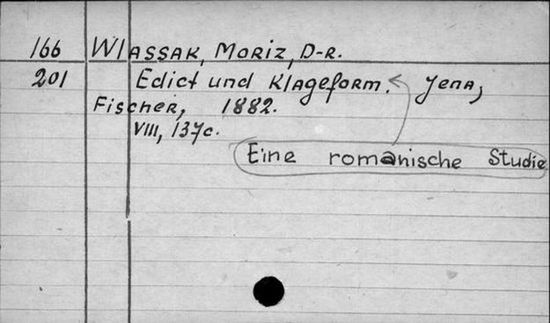 166 Wlassak, Moriz, D-r.
201 Edict und Klageform. Jena,
Fischer, 1882.
VIII, 137c.
Eine romanische Studie